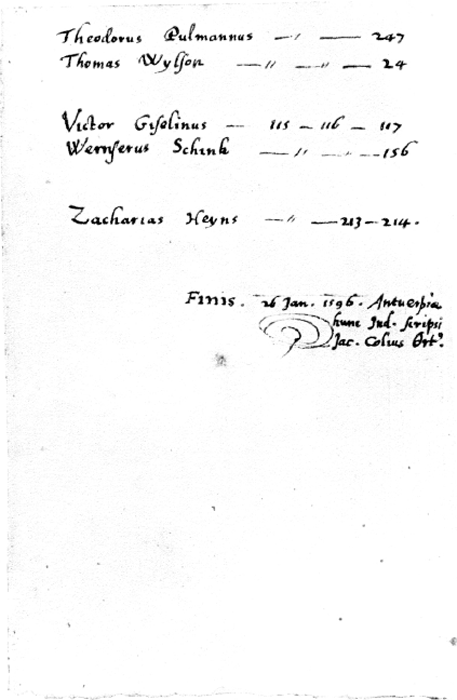 Theodorus Pulmannus — 〃 — 247
Thomas Wylson — 〃 — 〃 — 24
Victor Giselinus — 115 — 116 — 117
Wernserus Schink — 〃 — 〃 — 156
Zacharias Heyns — 〃 — 213 — 214.
Finis. 26 Jan. 1596. Antuerpiæ
hunc Ind. scripsi
Jac. Colius Ortˢ.